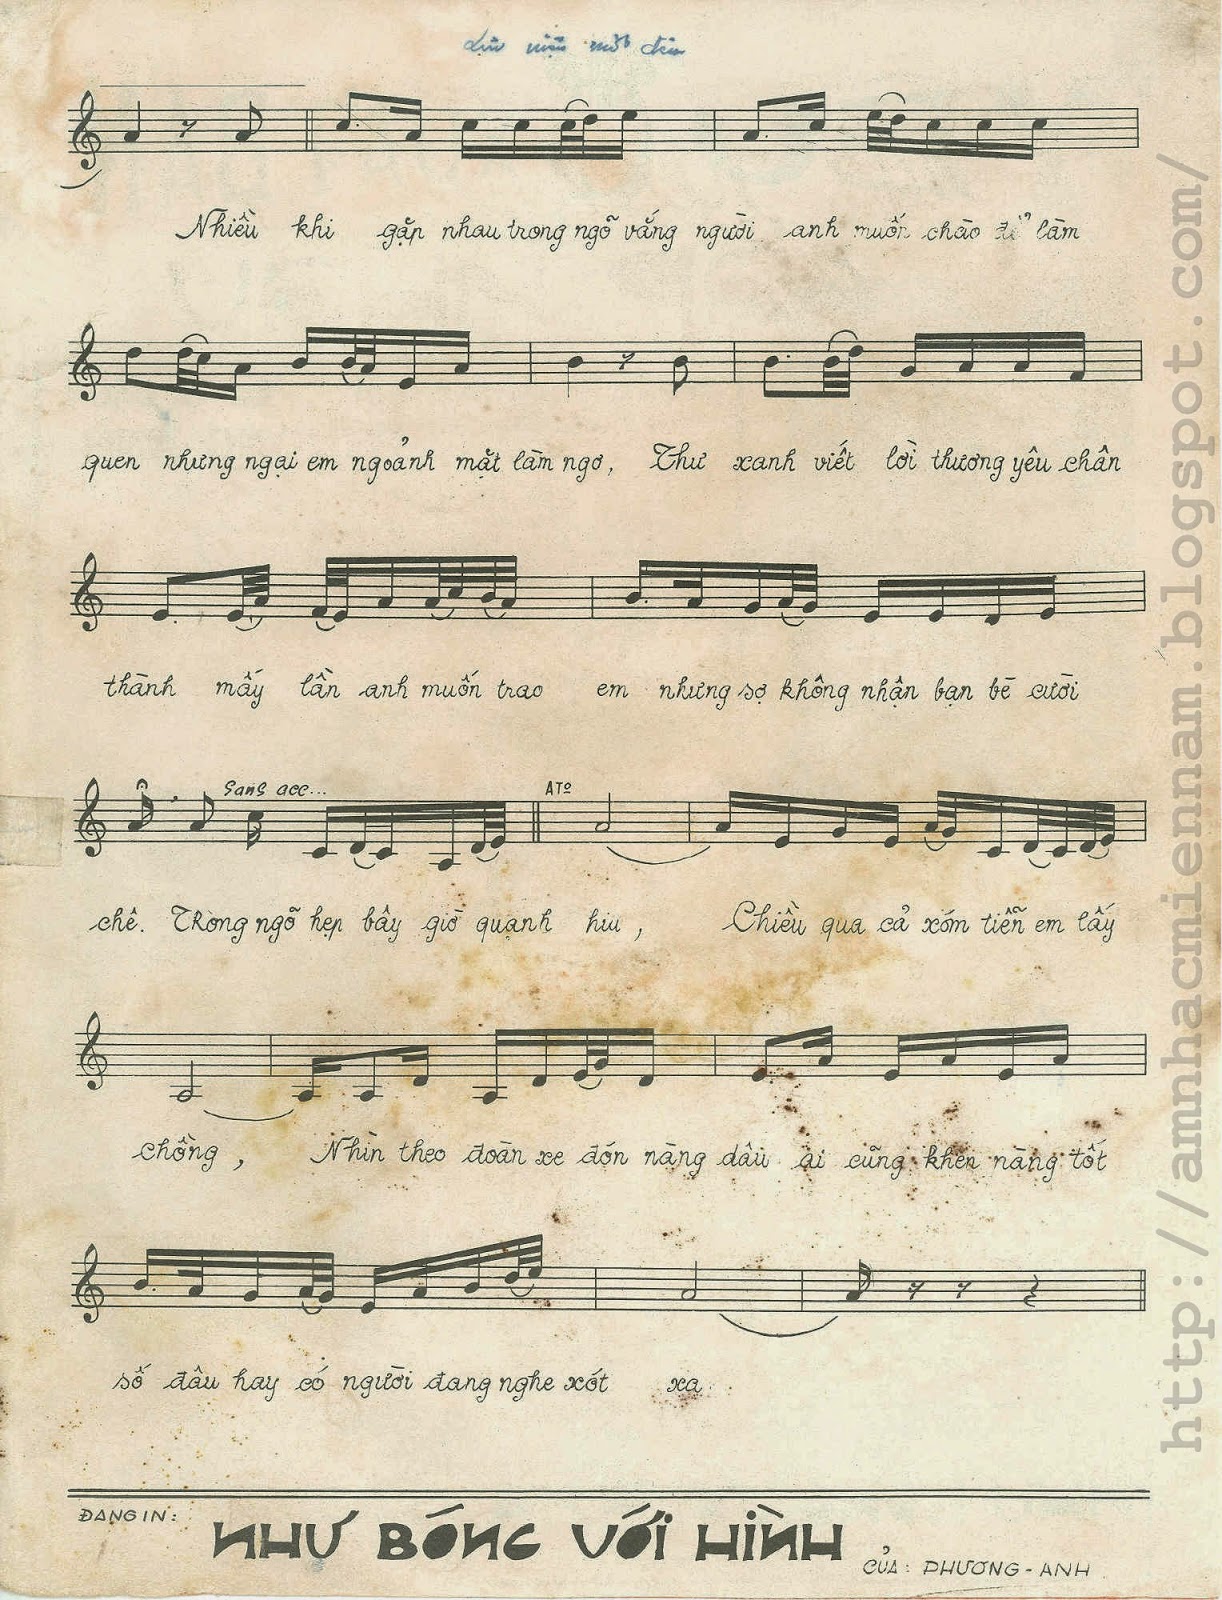 Nhiều khi gặp nhau trong ngõ vắng người anh muốn chào để làm
quen nhưng ngại em ngoảnh mặt làm ngơ, Thư xanh viết lời thương yêu chân
thành mấy lần anh muốn trao em nhưng sợ không nhận bạn bè cười
Sans acc... ATO
chê. Trong ngõ hẹp bây giờ quạnh hiu, Chiều qua cả xóm tiễn em lấy
chồng, Nhìn theo đoàn xe đón nàng dâu ai cũng khen nàng tốt
số đâu hay có người đang nghe xót xa
ĐANG IN: NHƯ BÓNG VỚI HÌNH CỦA: PHƯƠNG-ANH
http://amnhacmiennam.blogspot.com/